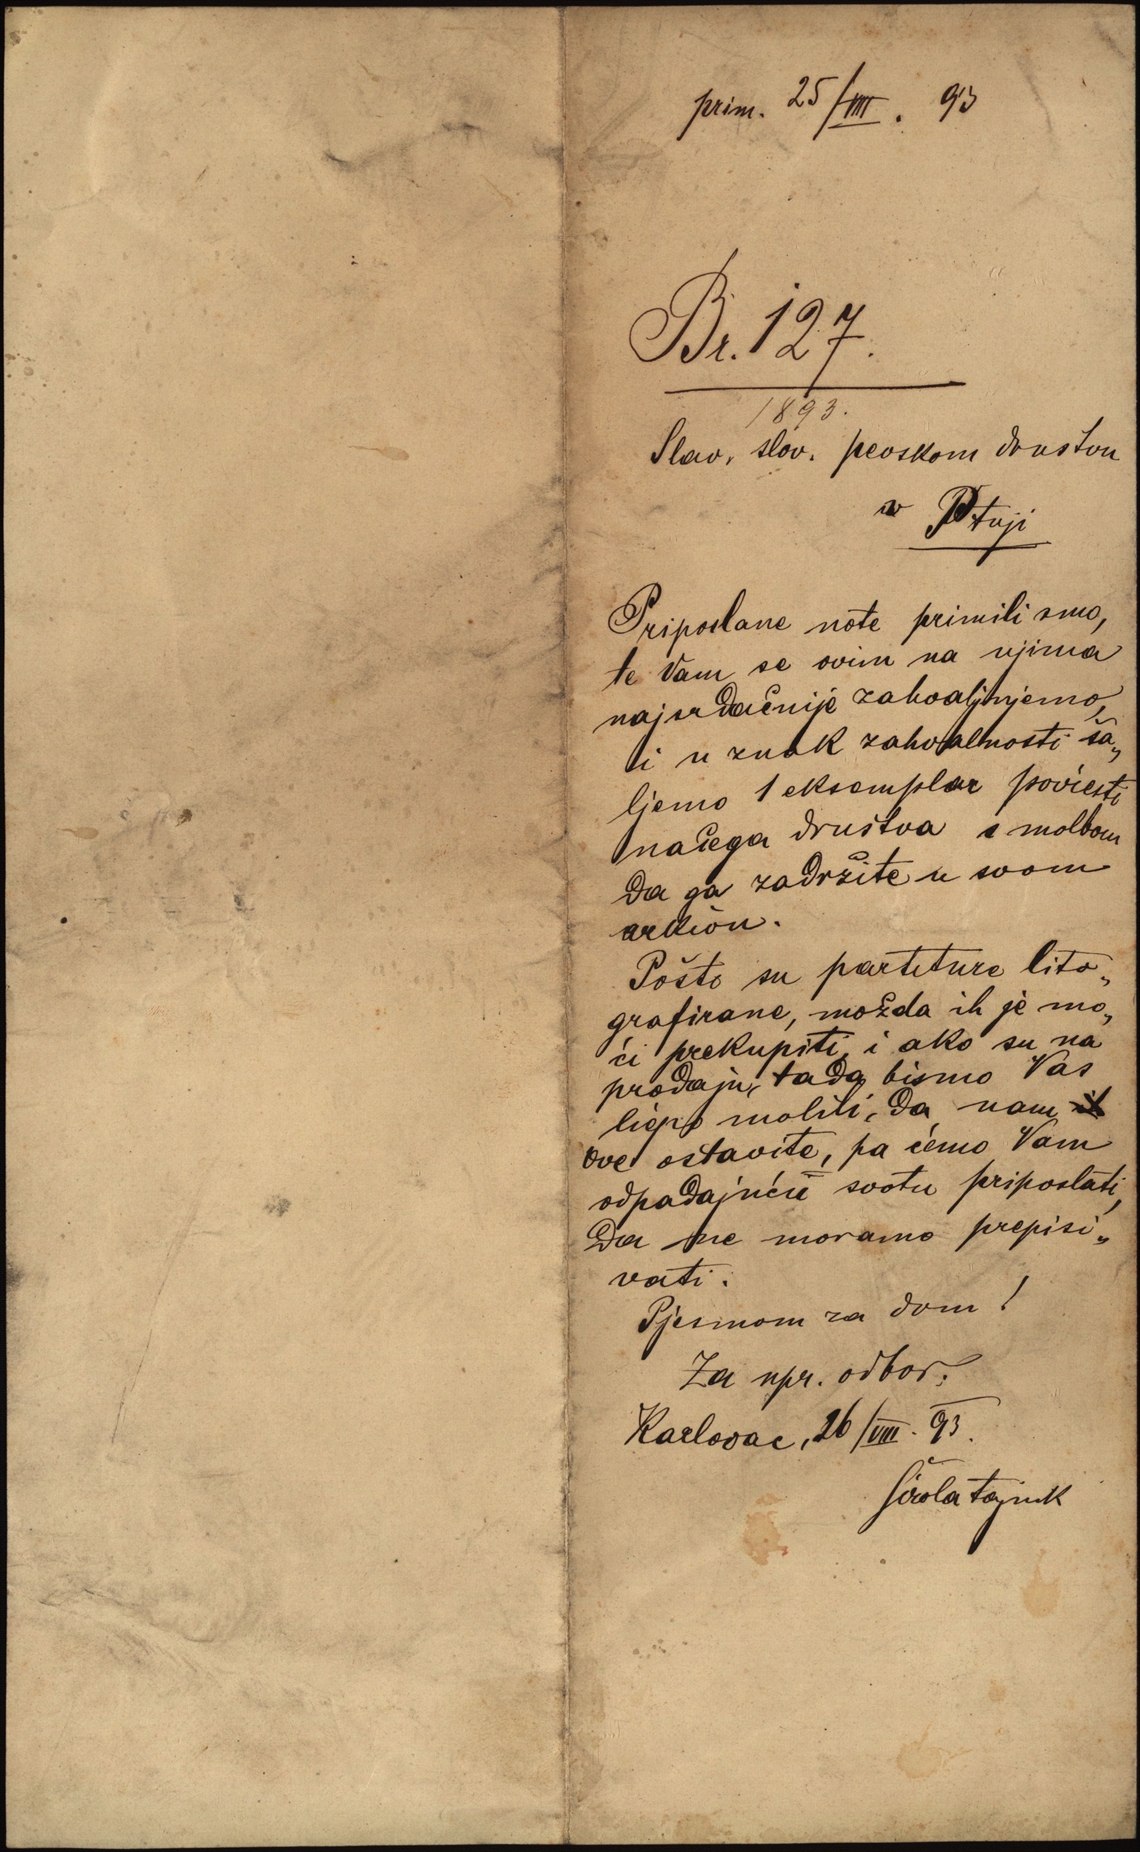 prim. 25/VIII. 93
Br. 127.
1893.
Slav. slov. pevskom družtvu
v Ptuji
Priposlane note primili smo,
te Vam se ovim na njima
najsrdačnije zahvaljujemo,
i u znak zahvalnosti ša„
ljemo 1 eksemplar poviesti
našega družtva s molbom
da ga zadržite u svom
arkivu.
Pošto su partiture lito„
grafirane, možda ih je mo„
ći prekupiti, i ako su na
prodaju, tada bismo Vas
liepo molili, da nam
ove ostavite, pa ćemo Vam
odpadajuću svotu priposlati,
da ne moramo prepisi„
vati.
Pjesmom za dom!
Za upr. odbor:
Karlovac, 26/VIII. 93.